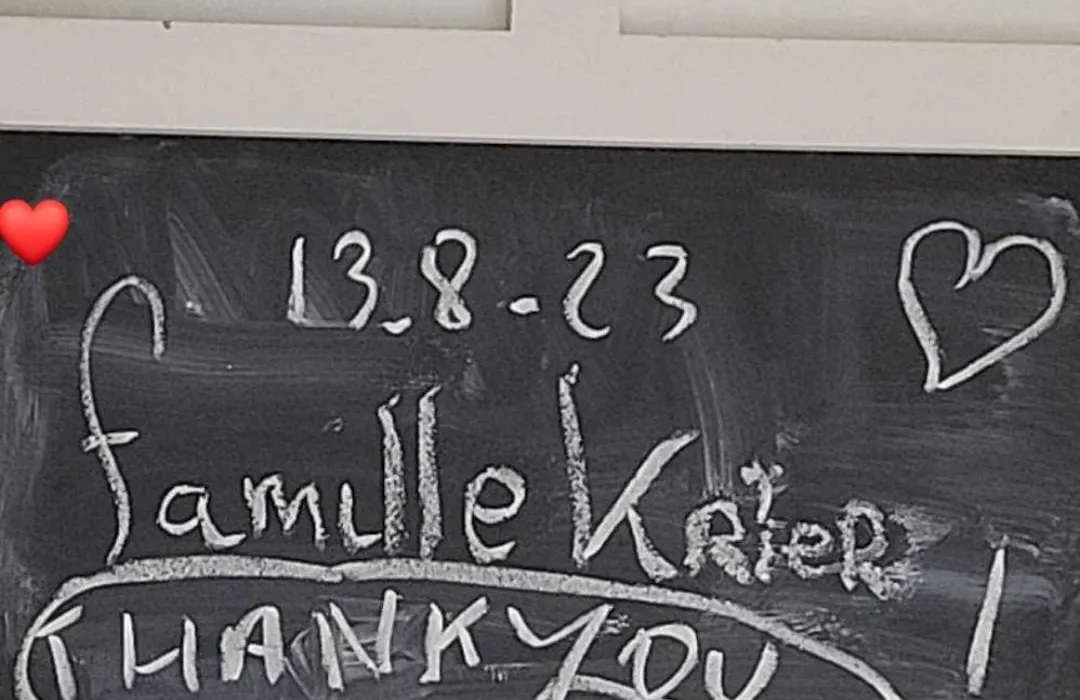 13.8-23
Famille KRieR
THANK YOU !